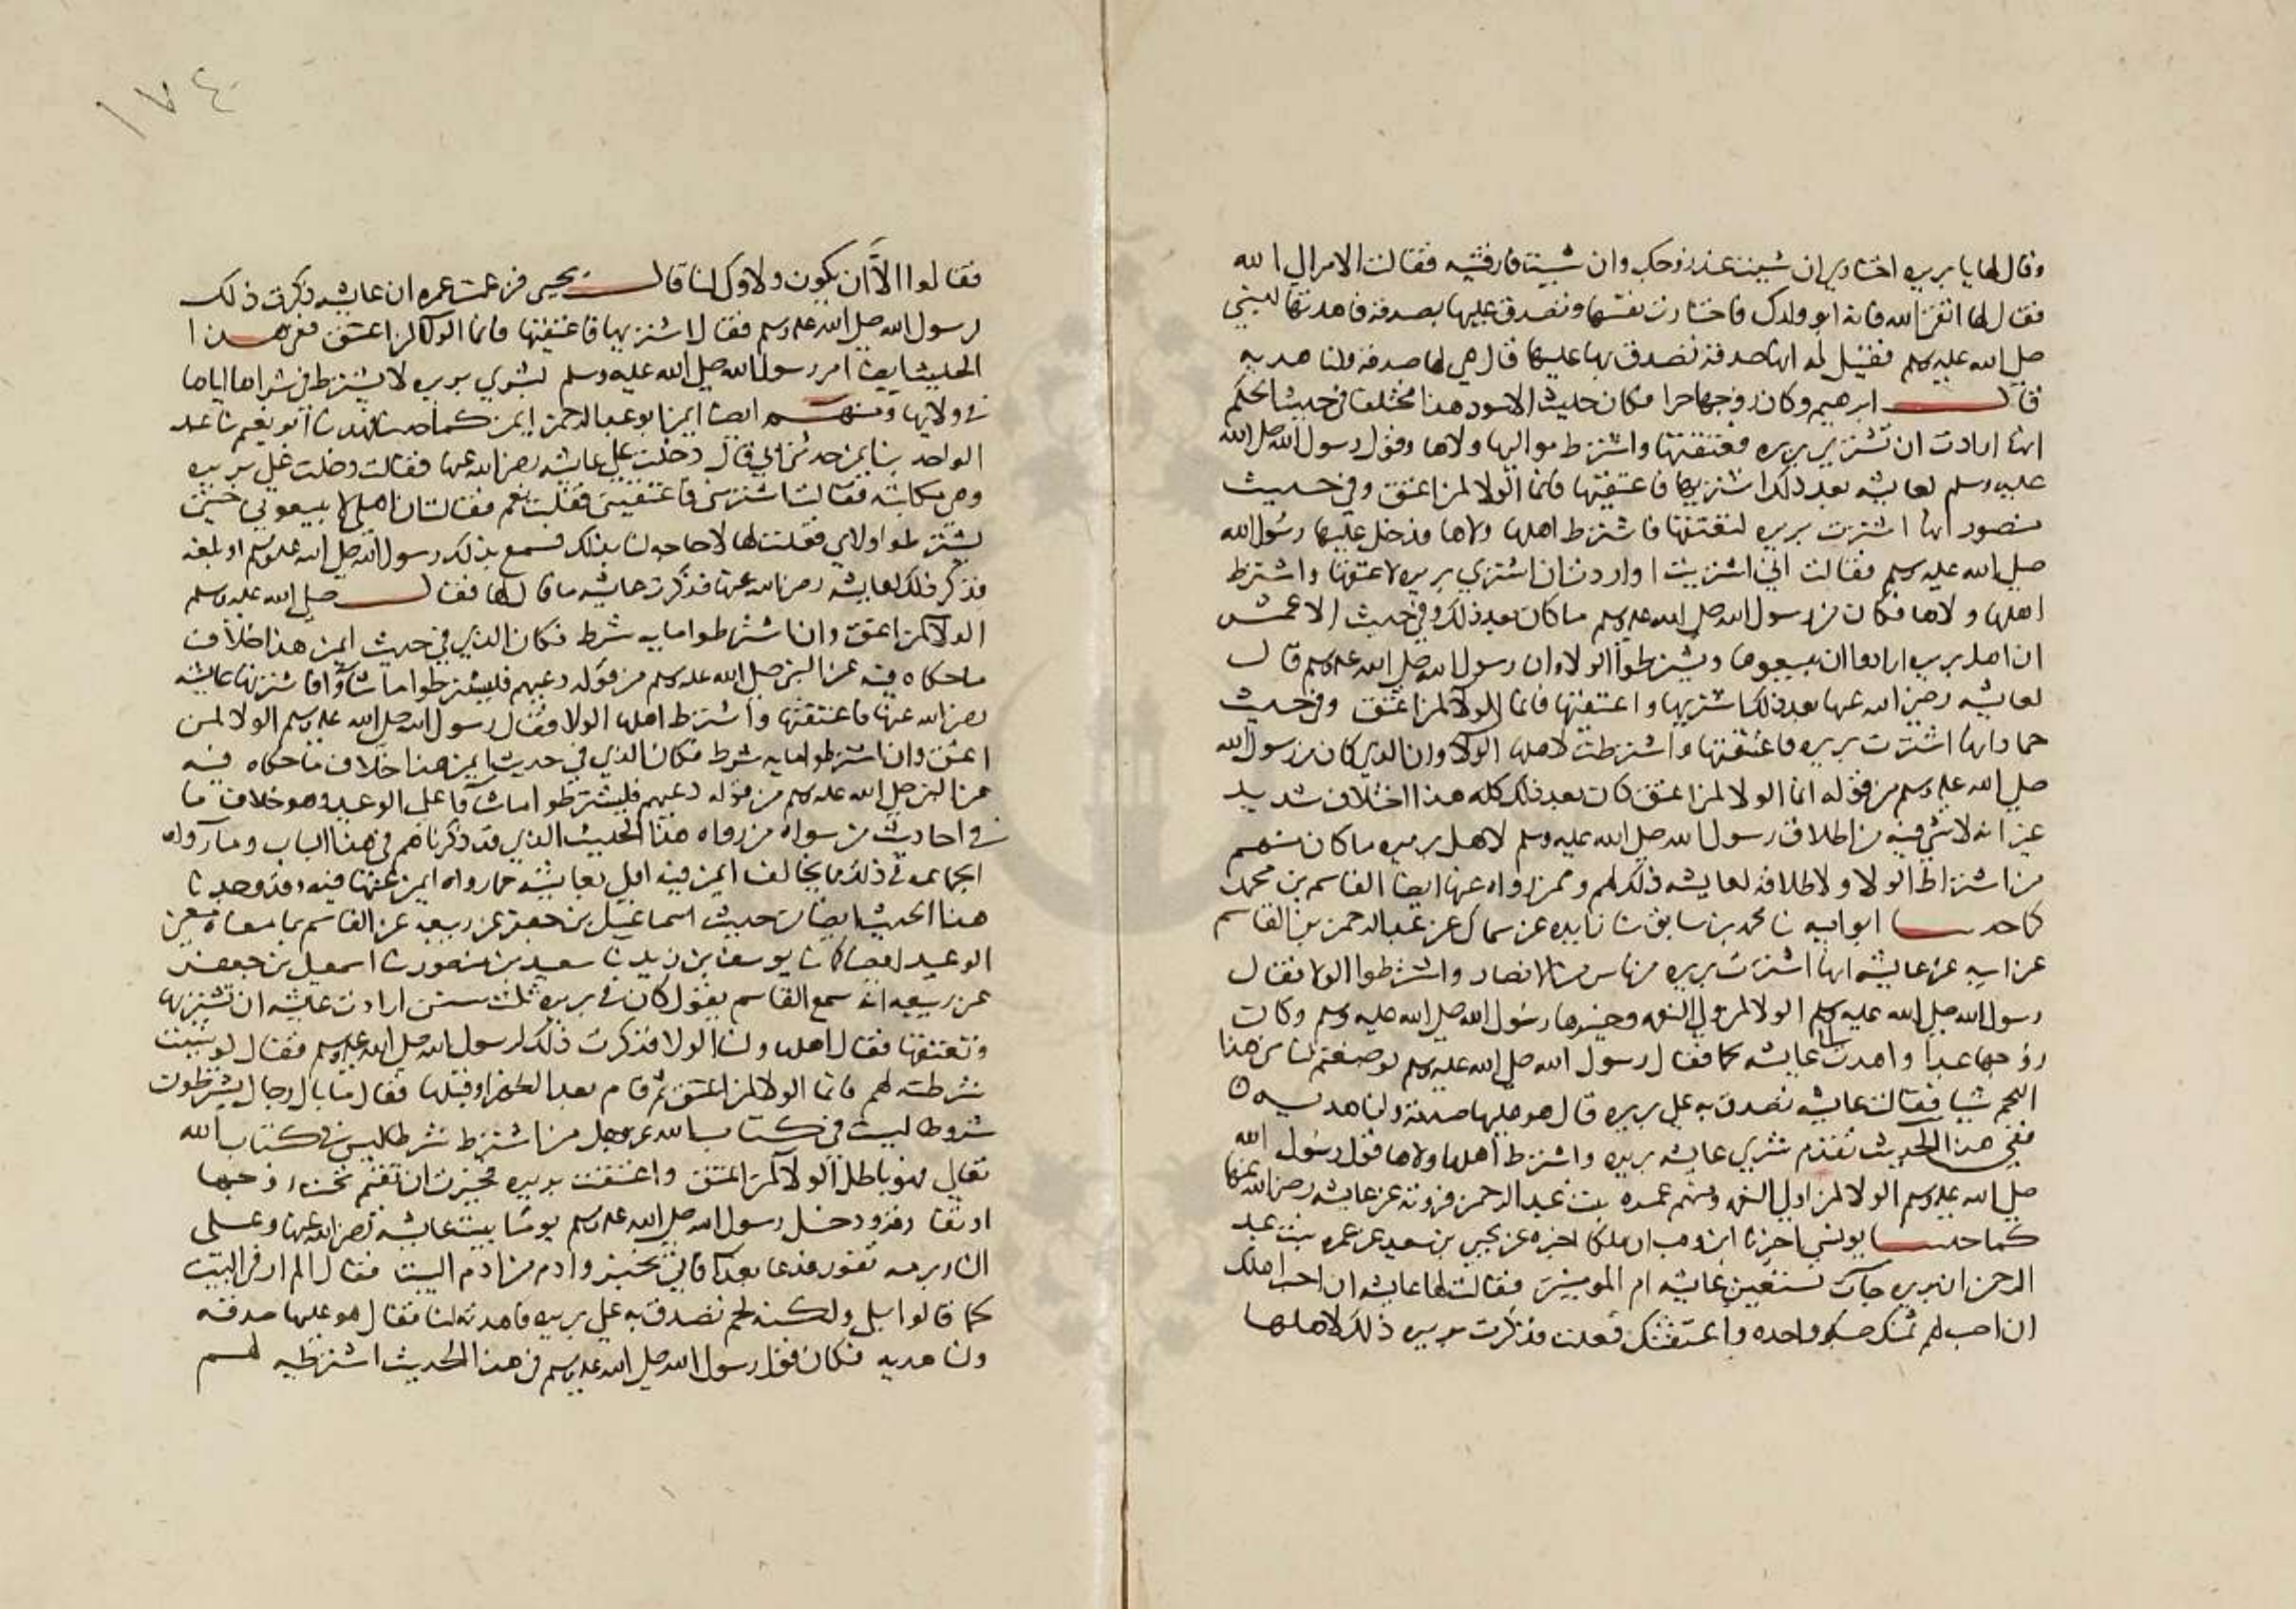 وقال لها يا بريره اختاري ان شيت عند زوجك وان شيت فارقتيه فقالت الامر الى الله
فقال لها اتقى الله فانه ابو ولدك فاختارت نفسها وتصدق عليها بصدقة فاهدتها لنبي
صلى الله عليه وسلم فقيل له انها صدقة تصدق بها عليها قال هي لها صدقة ولنا هديه
قال ابرهيم وكان زوجها حرا فكان حديث الاسود هذا مختلفا في حديث الحكم
انها ارادت ان تشتري بريره فتعتقها واشترط مواليها ولاها وقول رسول الله صلى الله
عليه وسلم لعايشه بعد ذلك اشتريها فاعتقيها فانما الولا لمن اعتق وفي حديث
منصور انها اشترت بريره لتعتقها فاشترط اهلها ولاها فدخل عليها رسول الله
صلى الله عليه وسلم فقالت اني اشتريت او اردت ان اشتري بريره لاعتقها واشترط
اهلها ولاها فكان من رسول الله صلى الله عليه وسلم ما كان بعد ذلك وفي حديث الاعمش
ان اهل بريره ارادوا ان يبيعوها ويشترطوا الولاء وان رسول الله صلى الله عليه وسلم قال
لعايشه رضي الله عنها بعد ذلك اشتريها واعتقيها فانما الولا لمن اعتق وفي حديث
حماد انها اشترت بريره فاعتقتها واشترطت لاهلها الولا وان الذي كان من رسول الله
صلى الله عليه وسلم من قوله انما الولا لمن اعتق كان بعد ذلك كله هذا اختلاف شديد
غير انه لا شي فيه من اطلاق رسول الله صلى الله عليه وسلم لاهل بريره ما كان منهم
من اشتراط الولا ولا اطلاقه لعايشه ذلك لهم وممن رواه عنها ايضا القاسم بن محمد
كما حدثنا ابو اميه نا محمد بن سابق نا زايده عن سماك عن عبد الرحمن بن القاسم
عن ابيه عن عايشه انها اشترت بريره من ناس من الانصار واشترطوا الولا فقال
رسول الله صلى الله عليه وسلم الولا لمن ولي النعمه وخيرها رسول الله صلى الله عليه وسلم وكان
زوجها عبدا واهدت الى عايشه لحما فقال رسول الله صلى الله عليه وسلم لو صنعتم لنا من هذا
اللحم شيا فقالت عايشه تصدق به على بريره قال هو عليها صدقة ولنا هديه
ففي هذا الحديث تقدم شري عايشه بريره واشترط اهلها ولاها قول رسول الله
صلى الله عليه وسلم الولا لمن اولى النعمه ومنهم عمره بنت عبد الرحمن فروته عن عايشه رضي الله عنها
كما حدثنا يونس اخبرنا ابن وهب ان ملكا اخبره عن يحيى بن سعيد عن عمره بنت عبد
الرحمن ان بريره جآت تستعين عايشه ام المومنين فقالت لها عايشه ان احب اهلك
ان اصب لهم ثمنك صبة واحده واعتقتك فعلت فذكرت بريره ذلك لاهلها
فقالوا الا ان يكون ولاوك لنا قال يحيى فزعمت عمره ان عايشه ذكرت ذلك
لرسول الله صلى الله عليه وسلم فقال اشتريها فاعتقيها فانما الولا لمن اعتق ففي هذا
الحديث ايضا امر رسول الله صلى الله عليه وسلم بشري بريره لا يشترط في شراها اياها
في ولايها ومنهم ايضا ايمن ابو عبد الواحد بن ايمن كما حدثنا فهد نا ابو نعيم نا عبد
الواحد بن ايمن حدثني ابي قال دخلت على عايشه رضي الله عنها فقالت دخلت علي بريره
وهي مكاتبه فقالت اشتريني فاعتقيني فقلت نعم فقالت ان اهلي لا يبيعوني حتى
يشترطوا ولاي فقلت لها لا حاجه لنا بذلك فسمع بذلك رسول الله صلى الله عليه وسلم او بلغه
فذكر ذلك لعايشه رضي الله عنها فذكرت عايشه ما قال لها فقال صلى الله عليه وسلم
الولا لمن اعتق وان اشترطوا مايه شرط فكان الذي في حديث ايمن هذا خلاف
ما حكاه فيه عن النبي صلى الله عليه وسلم من قوله دعيهم فليشترطوا ما شاوا فاشترتها عايشه
رضي الله عنها فاعتقتها واشترط اهلها الولا فقال رسول الله صلى الله عليه وسلم الولا لمن
اعتق وان اشترطوا مايه شرط فكان الذي في حديث ايمن هذا خلاف ما حكاه فيه
عن النبي صلى الله عليه وسلم من قوله دعيهم فليشترطوا ما شآوا على الوعيد وهو خلاف ما
في احاديث من سواه من رواه هذا الحديث الذين قد ذكرناهم في هذا الباب وما رواه
الجماعه في ذلك مما يخالف ايمن فيه اولى بعايشه مما رواه ايمن عنها فيه وقد وجدنا
هذا الحديث ايضا من حديث اسماعيل بن جعفر عن ربيعه عن القاسم بما معناه معنى
الوعيد ايضا كما نا يوسف بن زيد نا سعيد بن منصور نا اسمعيل بن جعفر
عن ربيعه انه سمع القاسم يقول كان في بريره ثلث سنن ارادت عايشه ان تشتريها
وتعتقها فقال اهلها ولنا الولا فذكرت ذلك لرسول الله صلى الله عليه وسلم فقال لو شيت
شرطته لهم فانما الولا لمن اعتق ثم قام بعد الظهر او قبلها فقال ما بال رجال يشترطون
شروطا ليست في كتاب الله عز وجل من اشترط شرطا ليس في كتاب الله
تعالى فهو باطل الولا لمن اعتق واعتقت بريره فخيرت ان تقيم تحت زوجها
او تفارقه ودخل رسول الله صلى الله عليه وسلم يوما بيت عايشه رضي الله عنها وعلى
النار برمه تفور فدعا بغدا فاتي بخبز وادم من ادم البيت فقال الم ار في البيت
لحما قالوا بلى ولكنه لحم تصدق به على بريره فاهدته لنا فقال هو عليها صدقه
ولنا هديه فكان قول رسول الله صلى الله عليه وسلم في هذا الحديث اشترطيه لهم
١٧٤